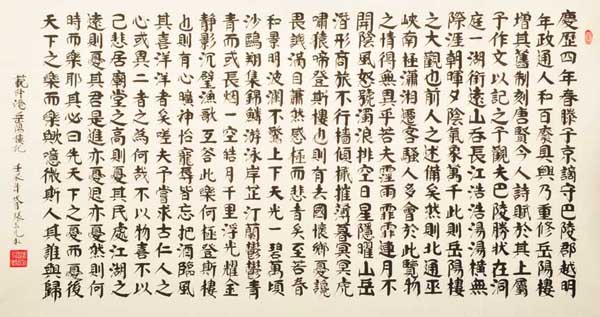 慶歷四年春滕子京謫守巴陵郡越明
年政通人和百廢具興乃重修岳陽樓
增其舊制刻唐賢今人詩賦於其上屬
予作文以記之予觀夫巴陵勝狀在洞
庭一湖銜遠山吞長江浩浩湯湯橫無
際涯朝暉夕陰氣象萬千此則岳陽樓
之大觀也前人之述備矣然則北通巫
峽南極瀟湘遷客騷人多會於此覽物
之情得無異乎若夫霪雨霏霏連月不
開陰風怒號濁浪排空日星隱曜山岳
潛形商旅不行檣傾楫摧薄暮冥冥虎
嘯猿啼登斯樓也則有去國懷鄉憂讒
畏譏滿目蕭然感極而悲者矣至若春
和景明波瀾不驚上下天光一碧萬頃
沙鷗翔集錦鱗游泳岸芷汀蘭鬱鬱青
青而或長煙一空皓月千里浮光耀金
靜影沉璧漁歌互答此樂何極登斯樓
也則有心曠神怡寵辱皆忘把酒臨風
其喜洋洋者矣嗟夫予嘗求古仁人之
心或異二者之為何哉不以物喜不以
己悲居廟堂之高則憂其民處江湖之
遠則憂其君是進亦憂退亦憂然則何
時而樂耶其必曰先天下之憂而憂後
天下之樂而樂歟噫微斯人吾誰與歸
范仲淹岳陽樓記